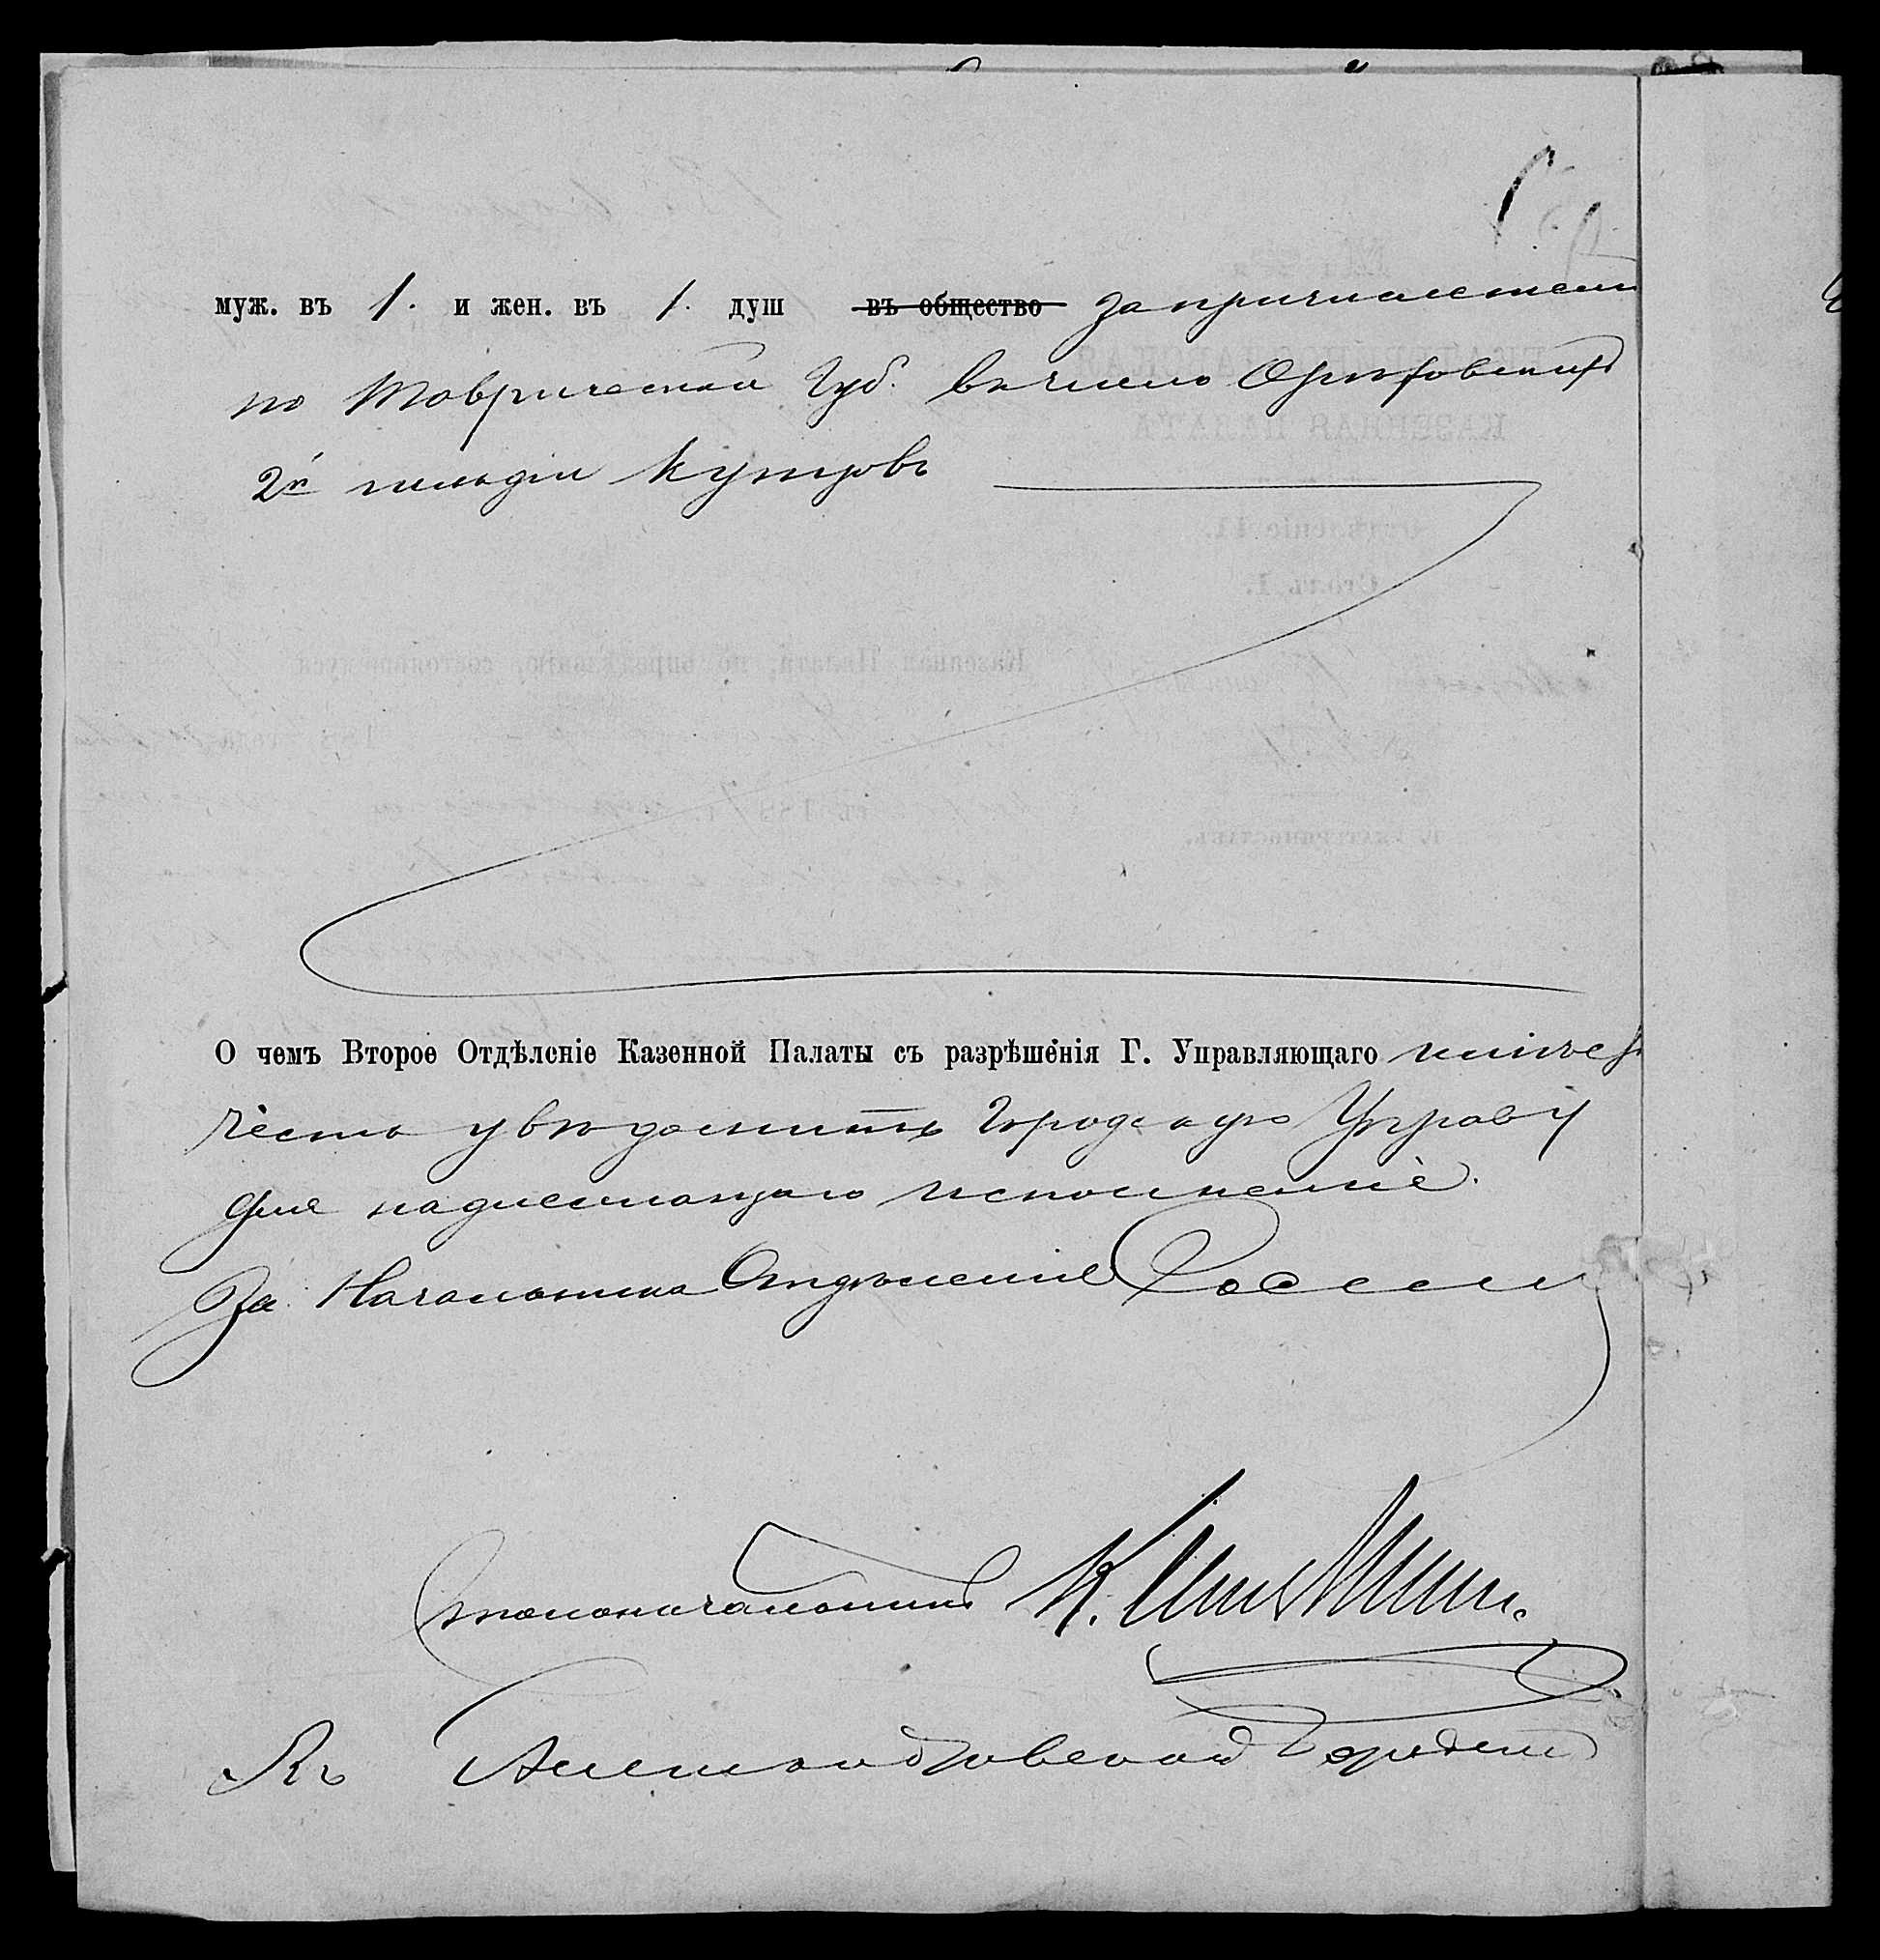 муж. въ 1. и жен. въ 1. душ въ общество за причислением
по Таврической Губ. въ число Ореховскихъ
2й гильдіи купцовъ
О чемъ Второе Отдѣленіе Казенной Палаты съ разрѣшенія Г. Управляющаго имѣетъ
честь увѣдомить Городскую Управу
для надлежащаго исполненія.
За Начальника Отдѣленія
Столоначальникъ К.
Въ Александровской Городской